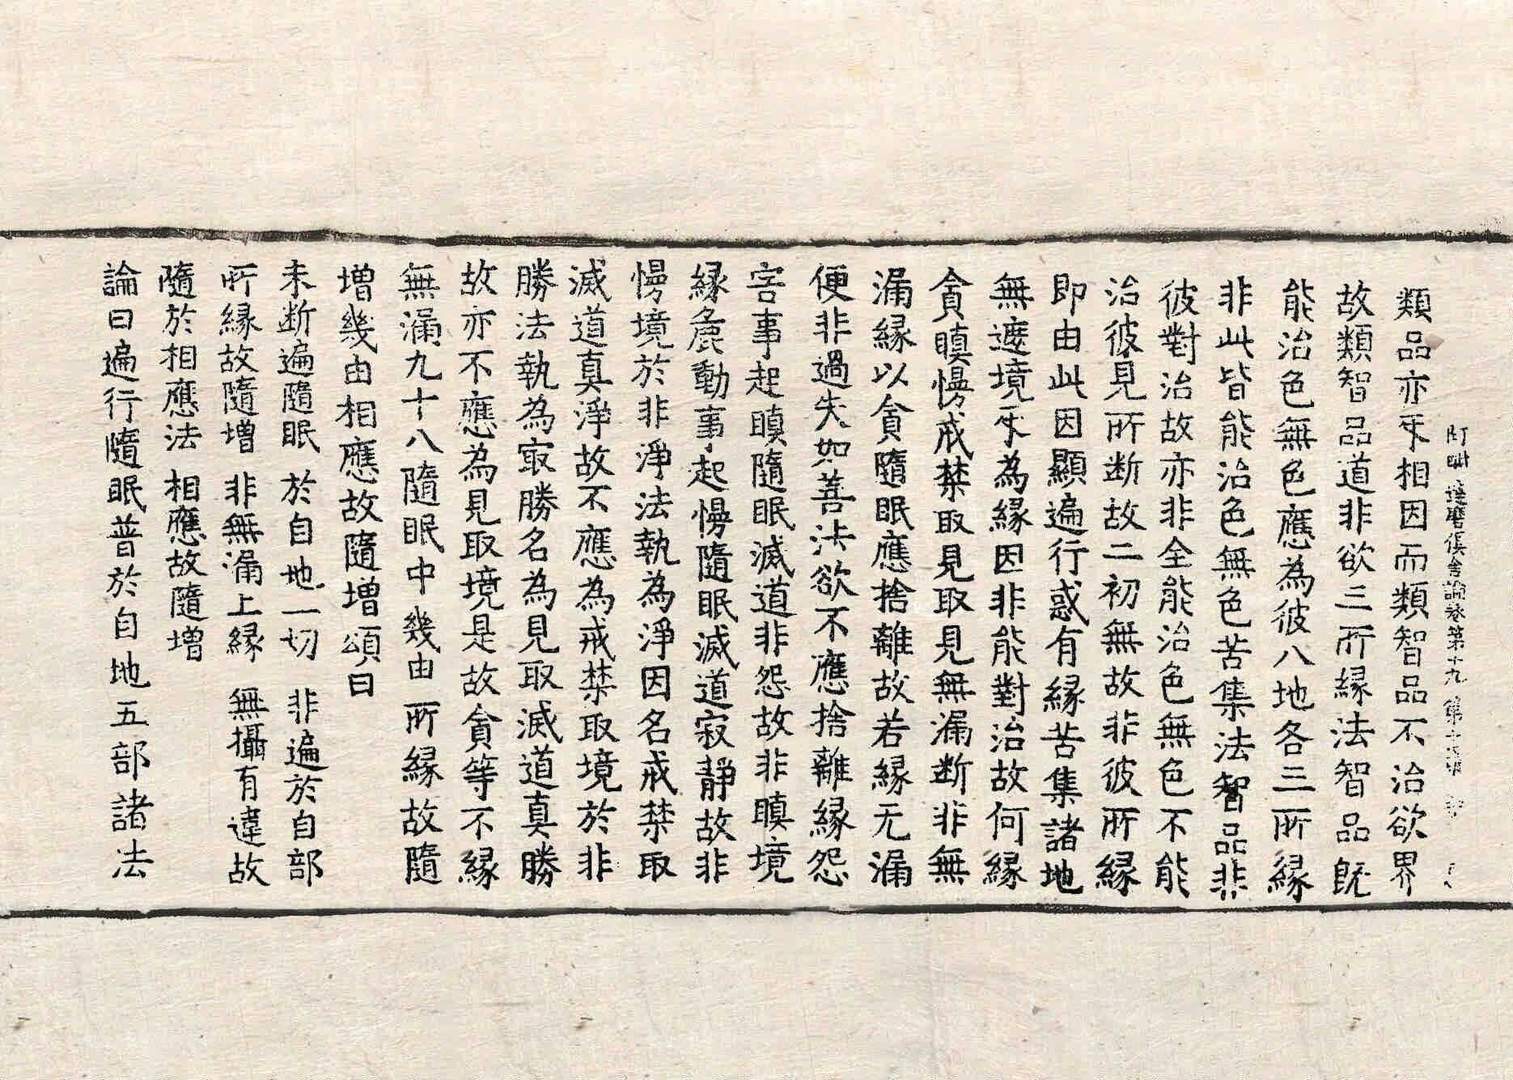 阿毗達磨俱舍論卷第十九 第十
類品亦㸦相因而類智品不治欲界
故類智品道非欲三所縁法智品既
能治色無色應為彼八地各三所縁
非此皆能治色無色苦集法智品非
彼對治故亦非全能治色無色不能
治彼見所断故二初無故非彼所縁
即由此因顯遍行惑有縁苦集諸地
無遮境㸦為縁因非能對治故何縁
貪瞋慢戒禁取見取見無漏断非無
漏縁以貪隨眠應捨離故若縁无漏
便非過失如善法欲不應捨離縁怨
害事起瞋隨眠滅道非怨故非瞋境
縁麁動事起慢隨眠滅道寂靜故非
慢境於非淨法執為淨因名戒禁取
滅道真淨故不應為戒禁取境於非
勝法執為㝡勝名為見取滅道真勝
故亦不應為見取境是故貪等不縁
無漏九十八隨眠中幾由所縁故隨
增幾由相應故隨增頌曰
未断遍隨眠 於自地一切 非遍於自部
所縁故隨增 非無漏上縁 無攝有違故
隨於相應法 相應故隨增
論曰遍行隨眠普於自地五部諸法